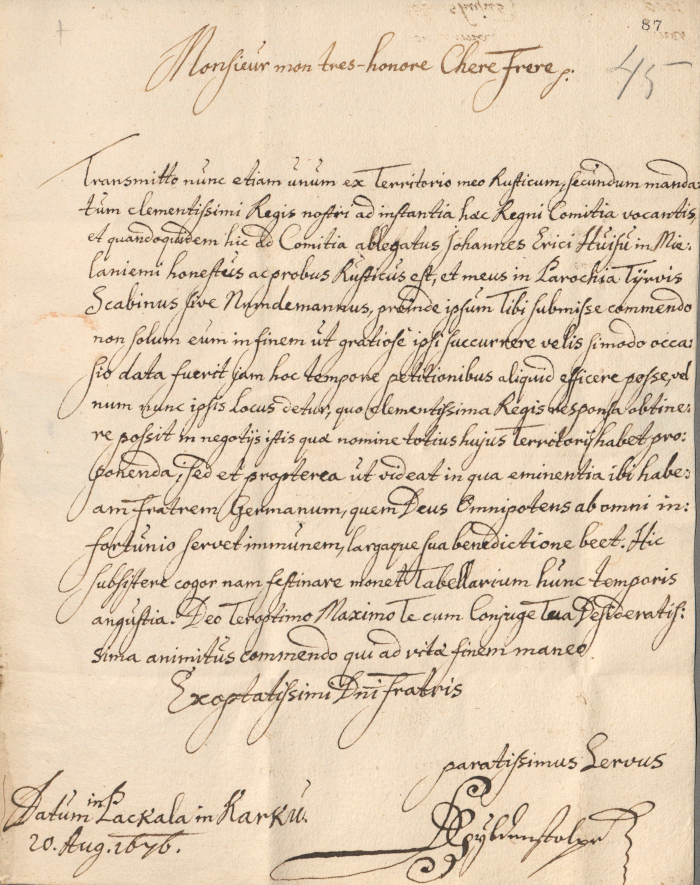 87
45
Monsieur mon tres-honore Chere Frere p:
Transmitto nunc etiam unum ex Territorio meo Rusticum, secundum manda:
tum clementissimi Regis nostri ad instantia hæc Regni Comitia vocantis,
et quandoquidem hic ad Comitia ablegatus Johannes Erici Huisu in Mie:
laniemi honestus ac probus Rusticus est, et meus in Parochia Tÿrvis
Scabinus sive Nämdemannus, proinde ipsum Tibi submisse commendo
non solum eum in finem ut gratiose ipsi succurrere velis si modo occa:
sio data fuerit jam hoc tempore petitionibus aliquid efficere posse, vel
num nunc ipsis locus detur, quo clementissima Regis responsa obtine:
re possit in negotijs istis quæ nomine totius hujus Territorij habet pro:
ponenda, sed et propterea ut videat in qua eminentia ibi habe:
am Fratrem Germanum, quem Deus Omnipotens ab omni in:
fortunio servet immunem, largaque sua benedictione beet. Hic
subsistere cogor nam festinare monet Tabellarium hunc temporis
angustia. Deo Teroptimo Maximo Te cum Conjuge Tua Desideratis:
sima animitus commendo qui ad vitæ finem maneo
Exoptatissimi Dni Fratris
paratissimus Servus
Datum in Lackala in Karku.
20. Aug. 1676.
Gyldenstolpe